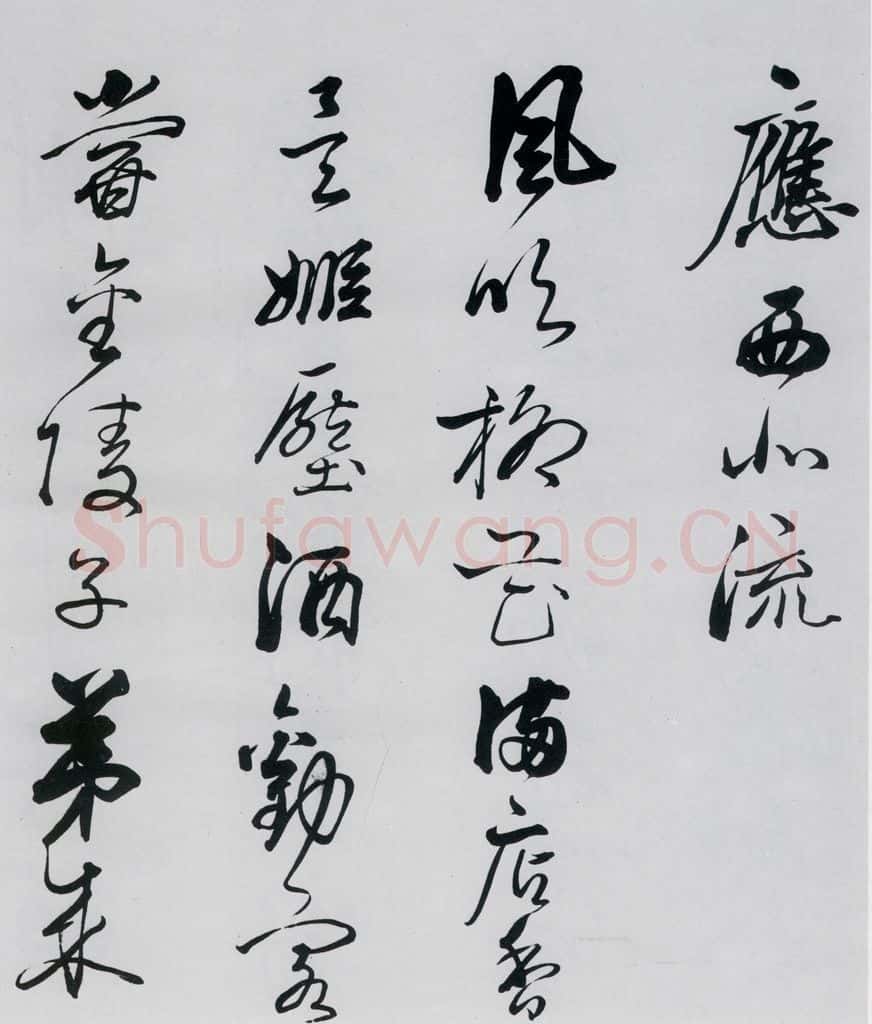 應西北流
風吹柳花滿店香
吳姬壓酒勸客
嘗金陵子弟來
Shufawang.CN